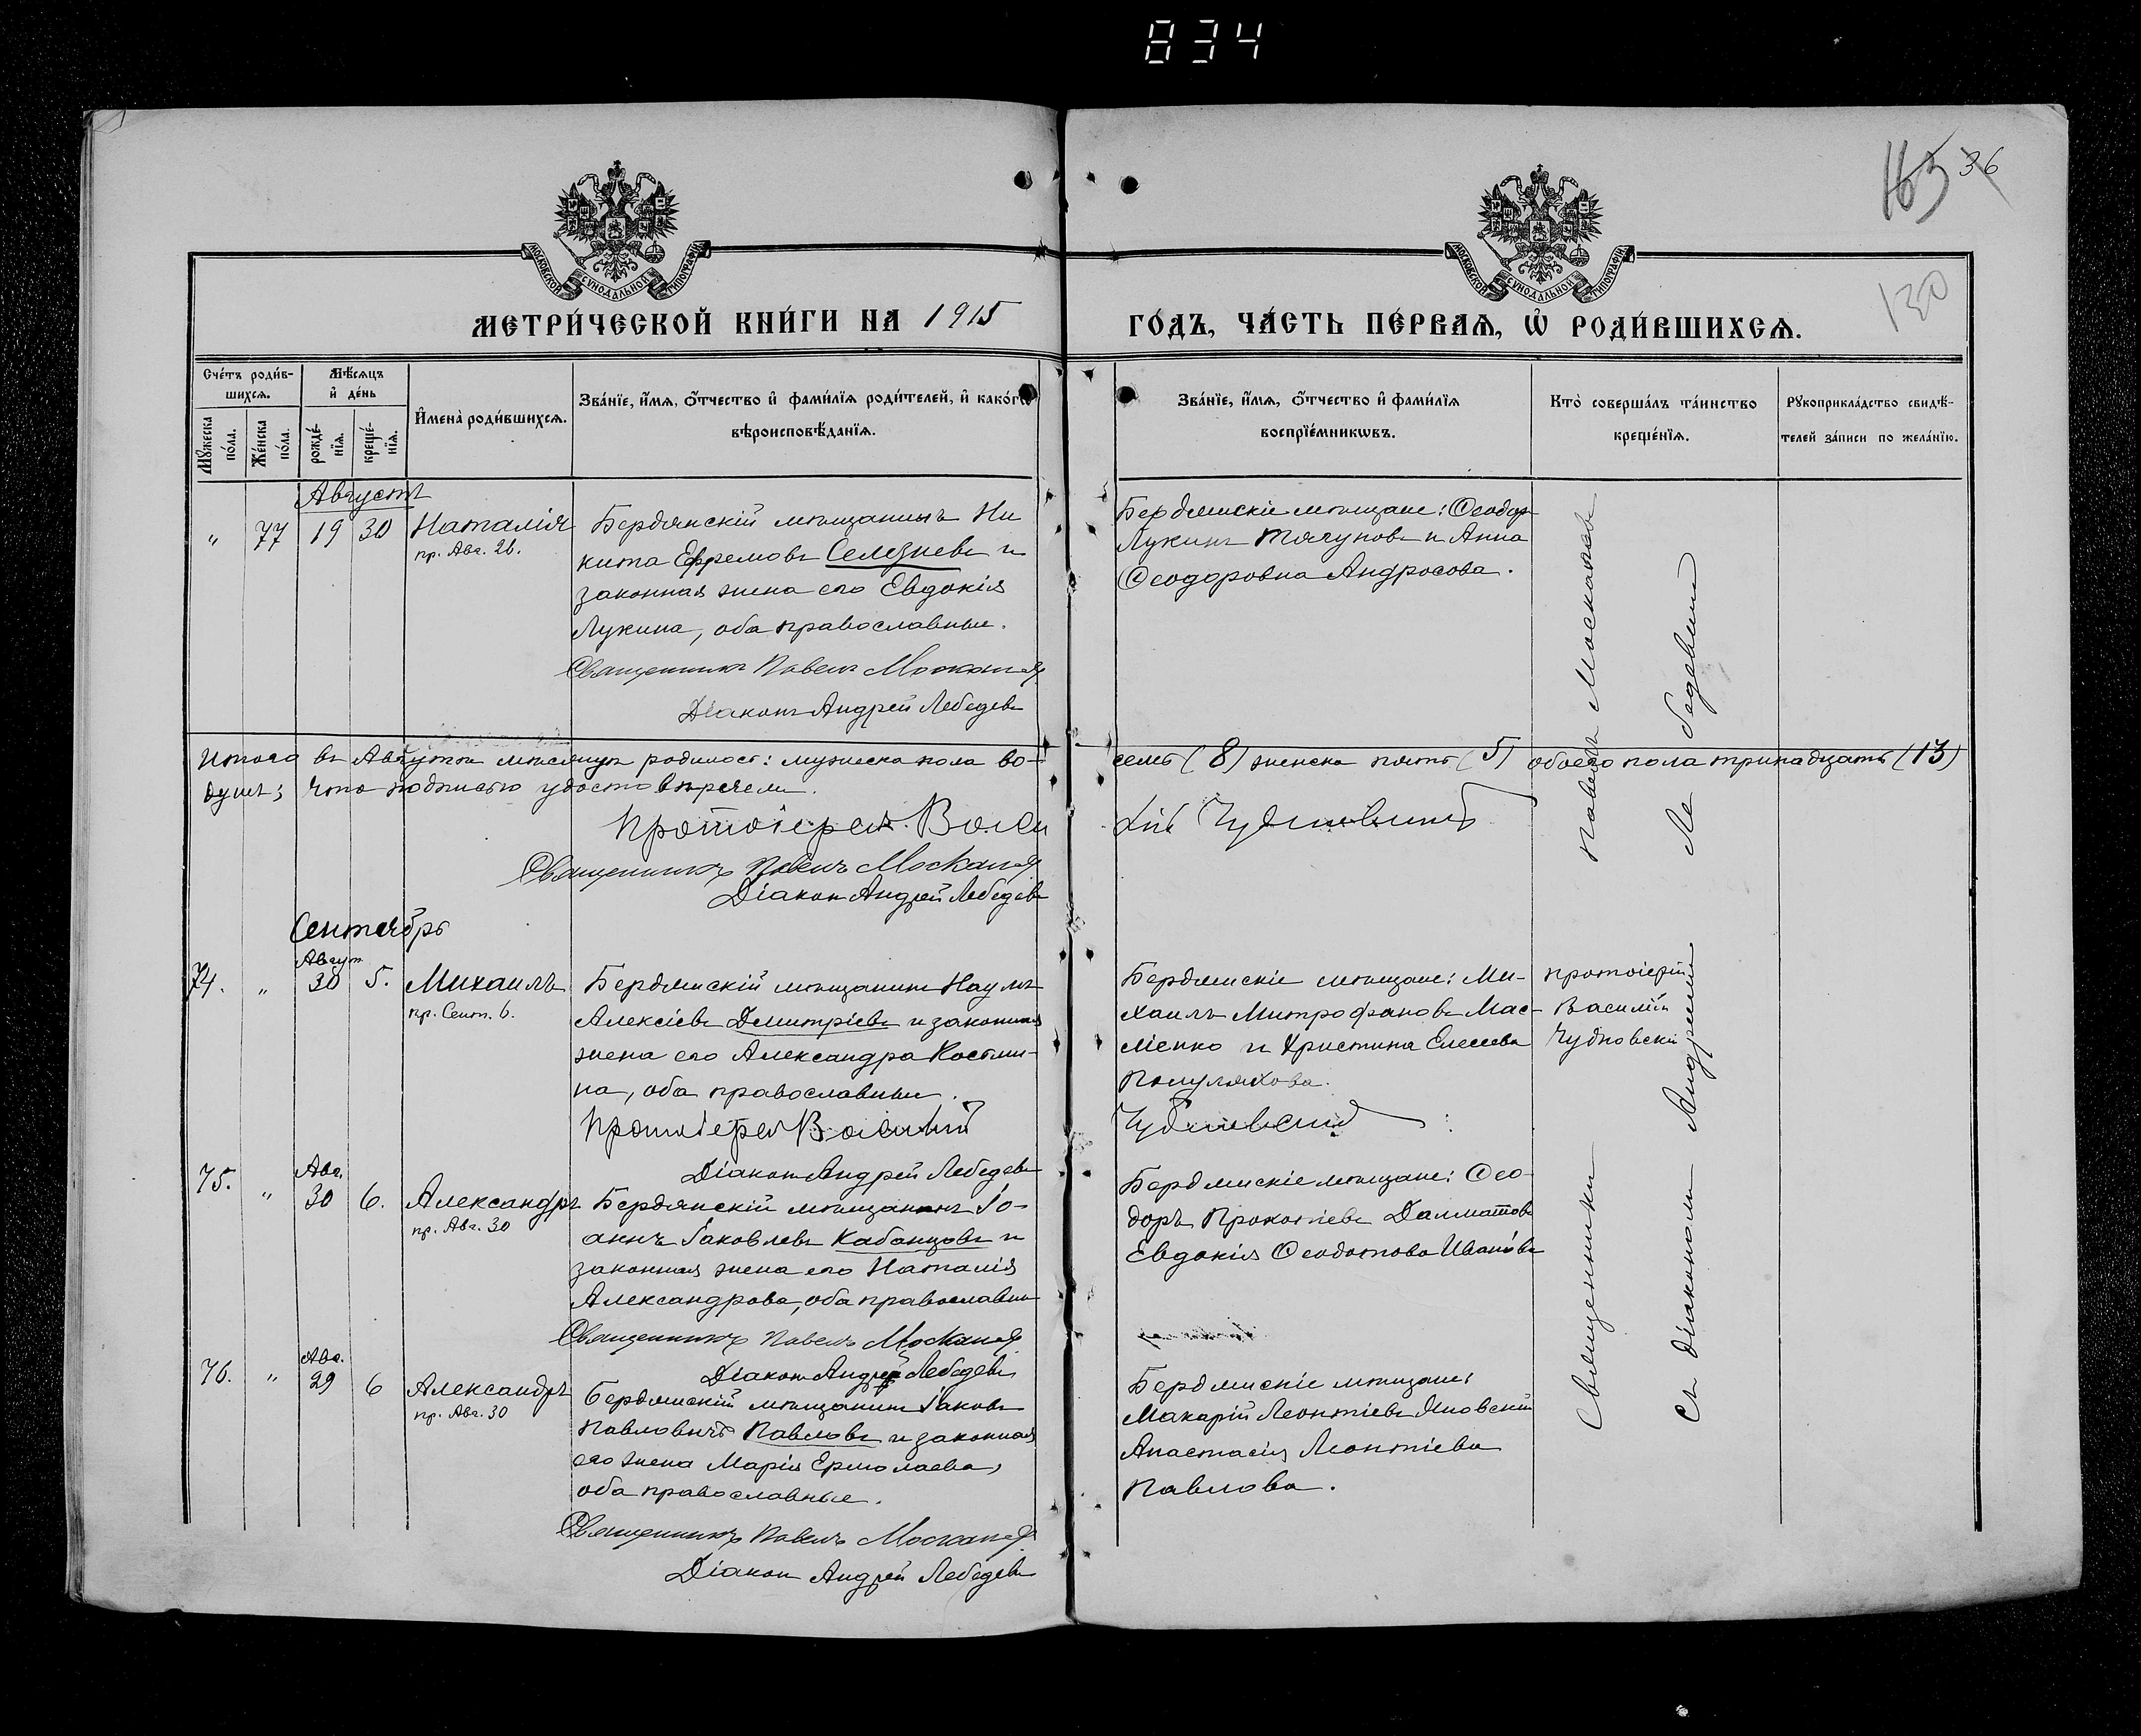 834
165 36
130
МОСКОВСКОЙ СѴНОДАЛЬНОЙ ТИПОГРАФІИ
МОСКОВСКОЙ СѴНОДАЛЬНОЙ ТИПОГРАФІИ
МЕТРИ́ЧЕСКОЙ КНИ́ГИ НА 1915
ГО́ДЪ, ЧА́СТЬ ПЕ́РВАѦ, Ѡ҆ РОДИ́ВШИХСѦ.
Сче́тъ роди́в-
шихсѧ.
Мꙋ́жеска по́ла.
Же́нска по́ла.
Мѣ́сѧцъ
и҆ де́нь
рожде́-
нїѧ.
креще́-
нїѧ.
И҆мена̀ роди́вшихсѧ.
Зва́нїе, и҆́мѧ, ѻ҆́тчество и҆ фами́лїѧ роди́телей, и҆ како́гѡ
вѣроисповѣ́данїѧ.
Зва́нїе, и҆́мѧ, ѻ҆́тчество и҆ фами́лїѧ
воспрїе́мникѡвъ.
Кто̀ соверша́лъ та́инство
креще́нїѧ.
Рꙋкоприкла́дство свидѣ́-
телей за́писи по жела́нїю.
Августъ
„ 77 19 30 Наталія
пр. Авг. 26.
Бердянскій мѣщанинъ Ни
кита Ефремовъ Селезневъ и
законная жена его Евдокія
Лукина, оба православные.
Священникъ Павелъ
Діаконъ Андрей Лебедевъ
Бердянскіе мѣщане: Ѳеодоръ
Лукинъ Тягуновъ и Анна
Ѳеодоровна Андросова.
Итого въ Августѣ мѣсяцѣ родилось: мужеска пола во-
семь (8) женска пять (5) обоего пола тринадцать (13)
душъ; что подписью удостовѣряемъ.
Протоіерей Васи
лій Чудновскій
Священникъ Павелъ
Діаконъ Андрей Лебедевъ
Сентябрь
Август
74. „ 30 5. Михаилъ
пр. Сент. 6.
Бердянскій мѣщанинъ Наумъ
Алексіевъ Димитріевъ и законная
жена его Александра Костин-
на, оба православные.
Протоіерей Василій
Діаконъ Андрей Лебедевъ
Бердянскіе мѣщане: Ми-
хаилъ Митрофановъ Мас-
ліенко и Христина Елисеева
Чудновскій
Протоіерей
Василій
Чудновскій
Авг.
75. „ 30 6. Александръ
пр. Авг. 30
Бердянскій мѣщанинъ Іо-
аннъ Іаковлевъ Кабанцовъ и
законная жена его Наталія
Александрова, оба православные
Священникъ Павелъ
Діаконъ Андрей Лебедевъ
Бердянскіе мѣщане: Ѳео-
доръ Прокопіевъ Далматовъ
Евдокія Ѳеодотова Иванова
Авг.
76. „ 29 6 Александръ
пр. Авг. 30
Бердянскій мѣщанинъ Іаковъ
Павловичъ Павловъ и законная
его жена Марія Ермолаева,
оба православные.
Священникъ Павелъ
Діаконъ Андрей Лебедевъ
Бердянскіе мѣщане:
Макарій Леонтіевъ Яновскій
Анастасія Леонтіева
Павлова.
Священники Павелъ
Съ діакономъ Андреемъ Лебедевымъ